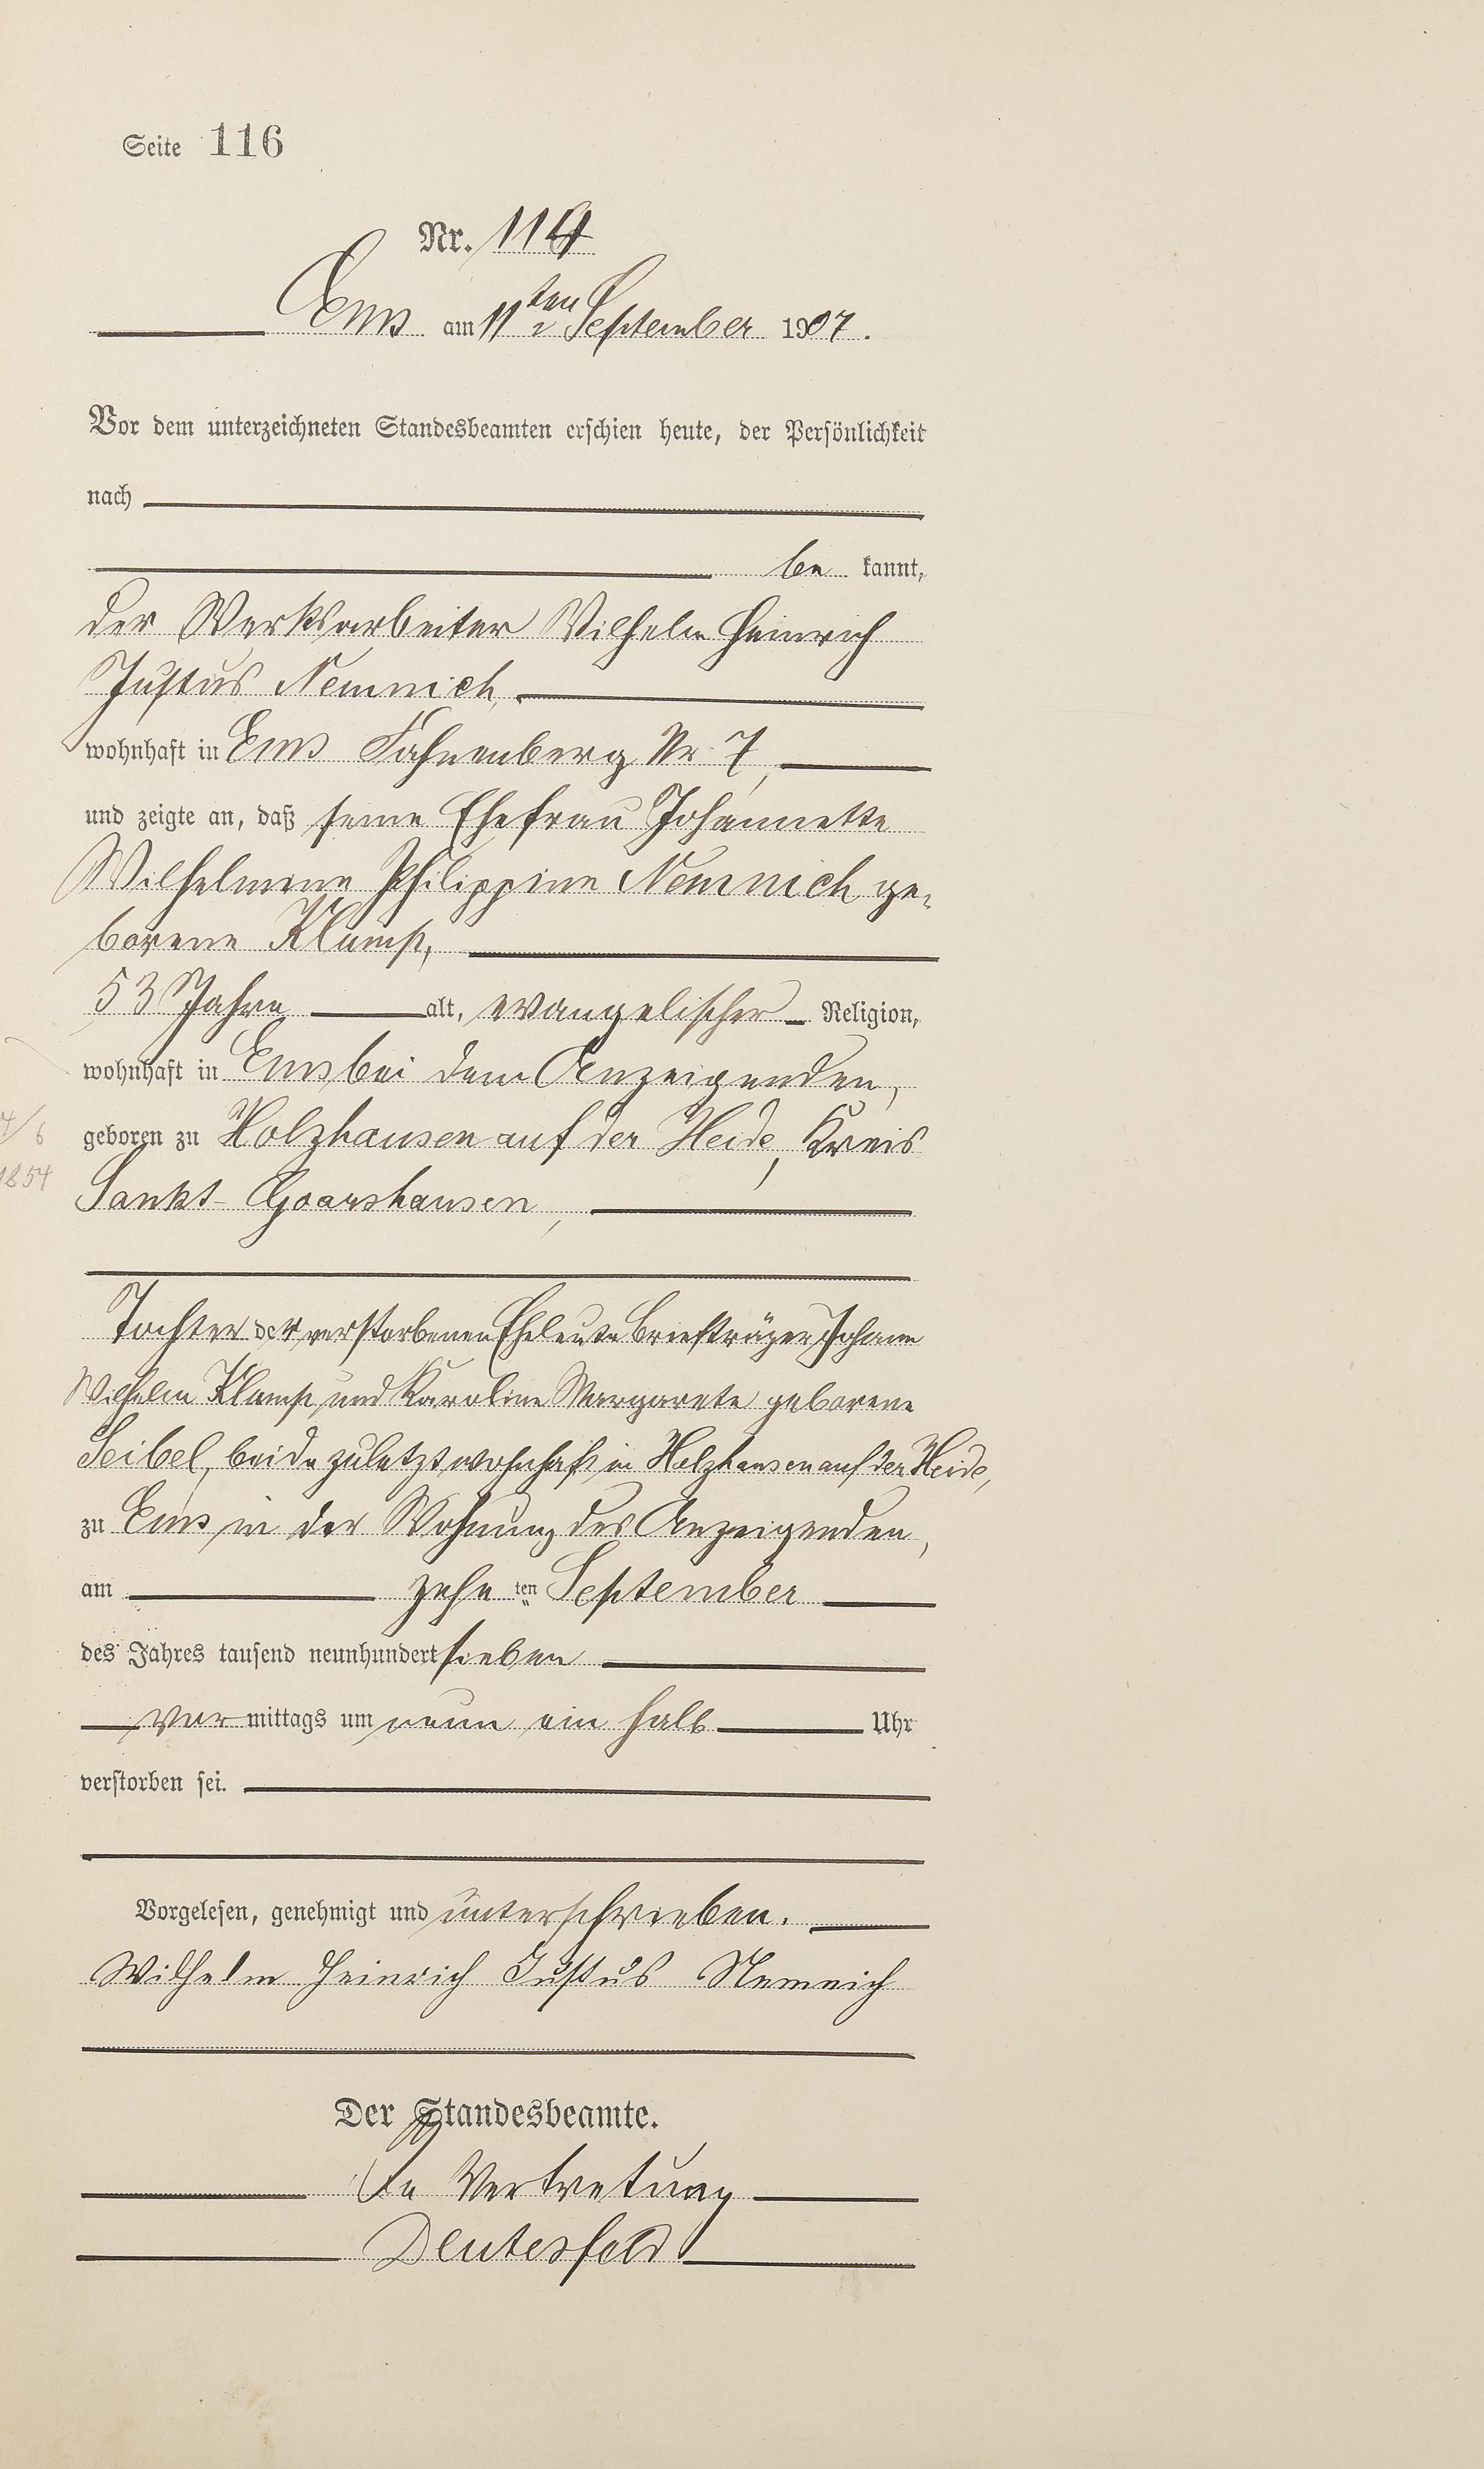 Seite 116
Nr. 114
Ems am 11ten September 1907.
Vor dem unterzeichneten Standesbeamten erschien heute, der Persönlichkeit
nach
be kannt,
der Werksarbeiter Wilhelm Heinrich
Justus Nemnich,
wohnhaft in Ems Fahnenberg Nr 7,
und zeigte an, daß seine Ehefrau Johannette
Wilhelmine Philippine Nemnich ge-
borene Klamp,
53 Jahre alt, evangelischer Religion,
wohnhaft in Ems bei dem Anzeigenden,
geboren zu Holzhausen auf der Heide, Kreis
1854
Sankt-Goarshausen,
Tochter der verstorbenen Eheleute Briefträger Johann
Wilhelm Klamp und Karoline Margarete geborene
Seibel, beide zuletzt wohnhaft in Holzhausen auf der Heide,
zu Ems in der Wohnung des Anzeigenden,
am zehn ten September
des Jahres tausend neunhundert sieben
vor mittags um neun ein halb Uhr
verstorben sei.
Vorgelesen, genehmigt und unterschrieben.
Wilhelm Heinrich Justus Nemnich
Der Standesbeamte.
In Vertretung
Deutesfeld